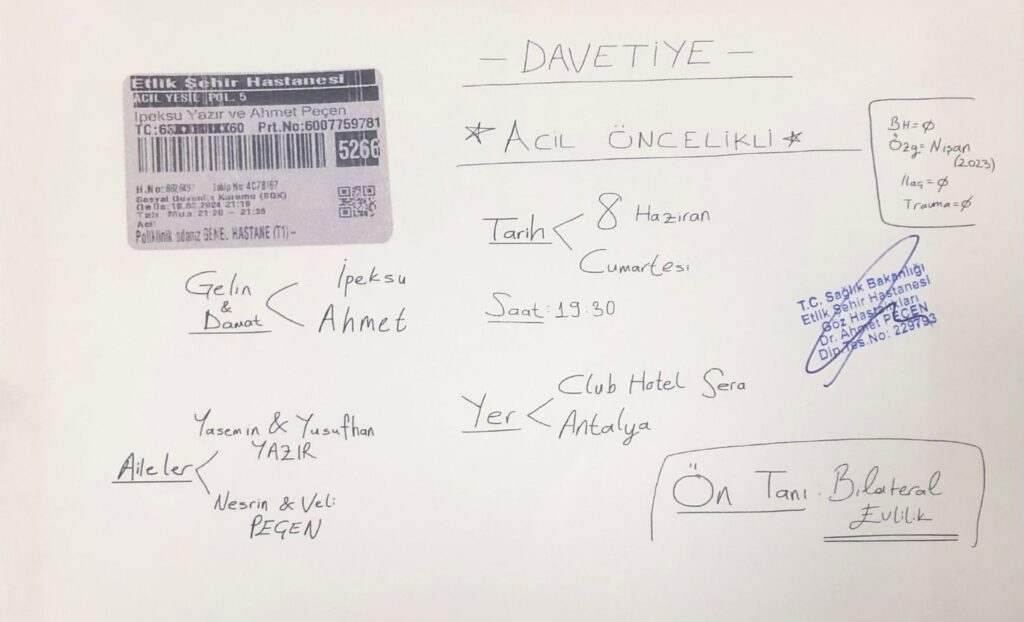 — DAVETİYE —
Etlik Şehir Hastanesi
ACIL YESIL POL. 5
Ipeksu Yazır ve Ahmet Peçen
TC:63XXXXXXX60 Prt.No:6007759781
5266
Sosyal Güvenlik Kurumu (SGK)
Gelis:19.03.2024 21:19
Tah. Mua 21:20 - 21:35
Acil
Poliklinik odanız GENE. HASTANE (T1) -
* ACİL ÖNCELİKLİ *
BH=Ø
Özg=Nişan
(2023)
İlaç=Ø
Travma=Ø
Tarih < 8 Haziran
Cumartesi
Saat: 19:30
Gelin
&
Damat
İpeksu
Ahmet
T.C. Sağlık Bakanlığı
Etlik Şehir Hastanesi
Göz Hastalıkları
Dr. Ahmet PEÇEN
Dip.Tes.No: 229793
Yer < Club Hotel Sera
Antalya
Aileler < Yasemin & Yusufhan
YAZIR
Nesrin & Veli
PEÇEN
Ön Tanı: Bilateral
Evlilik